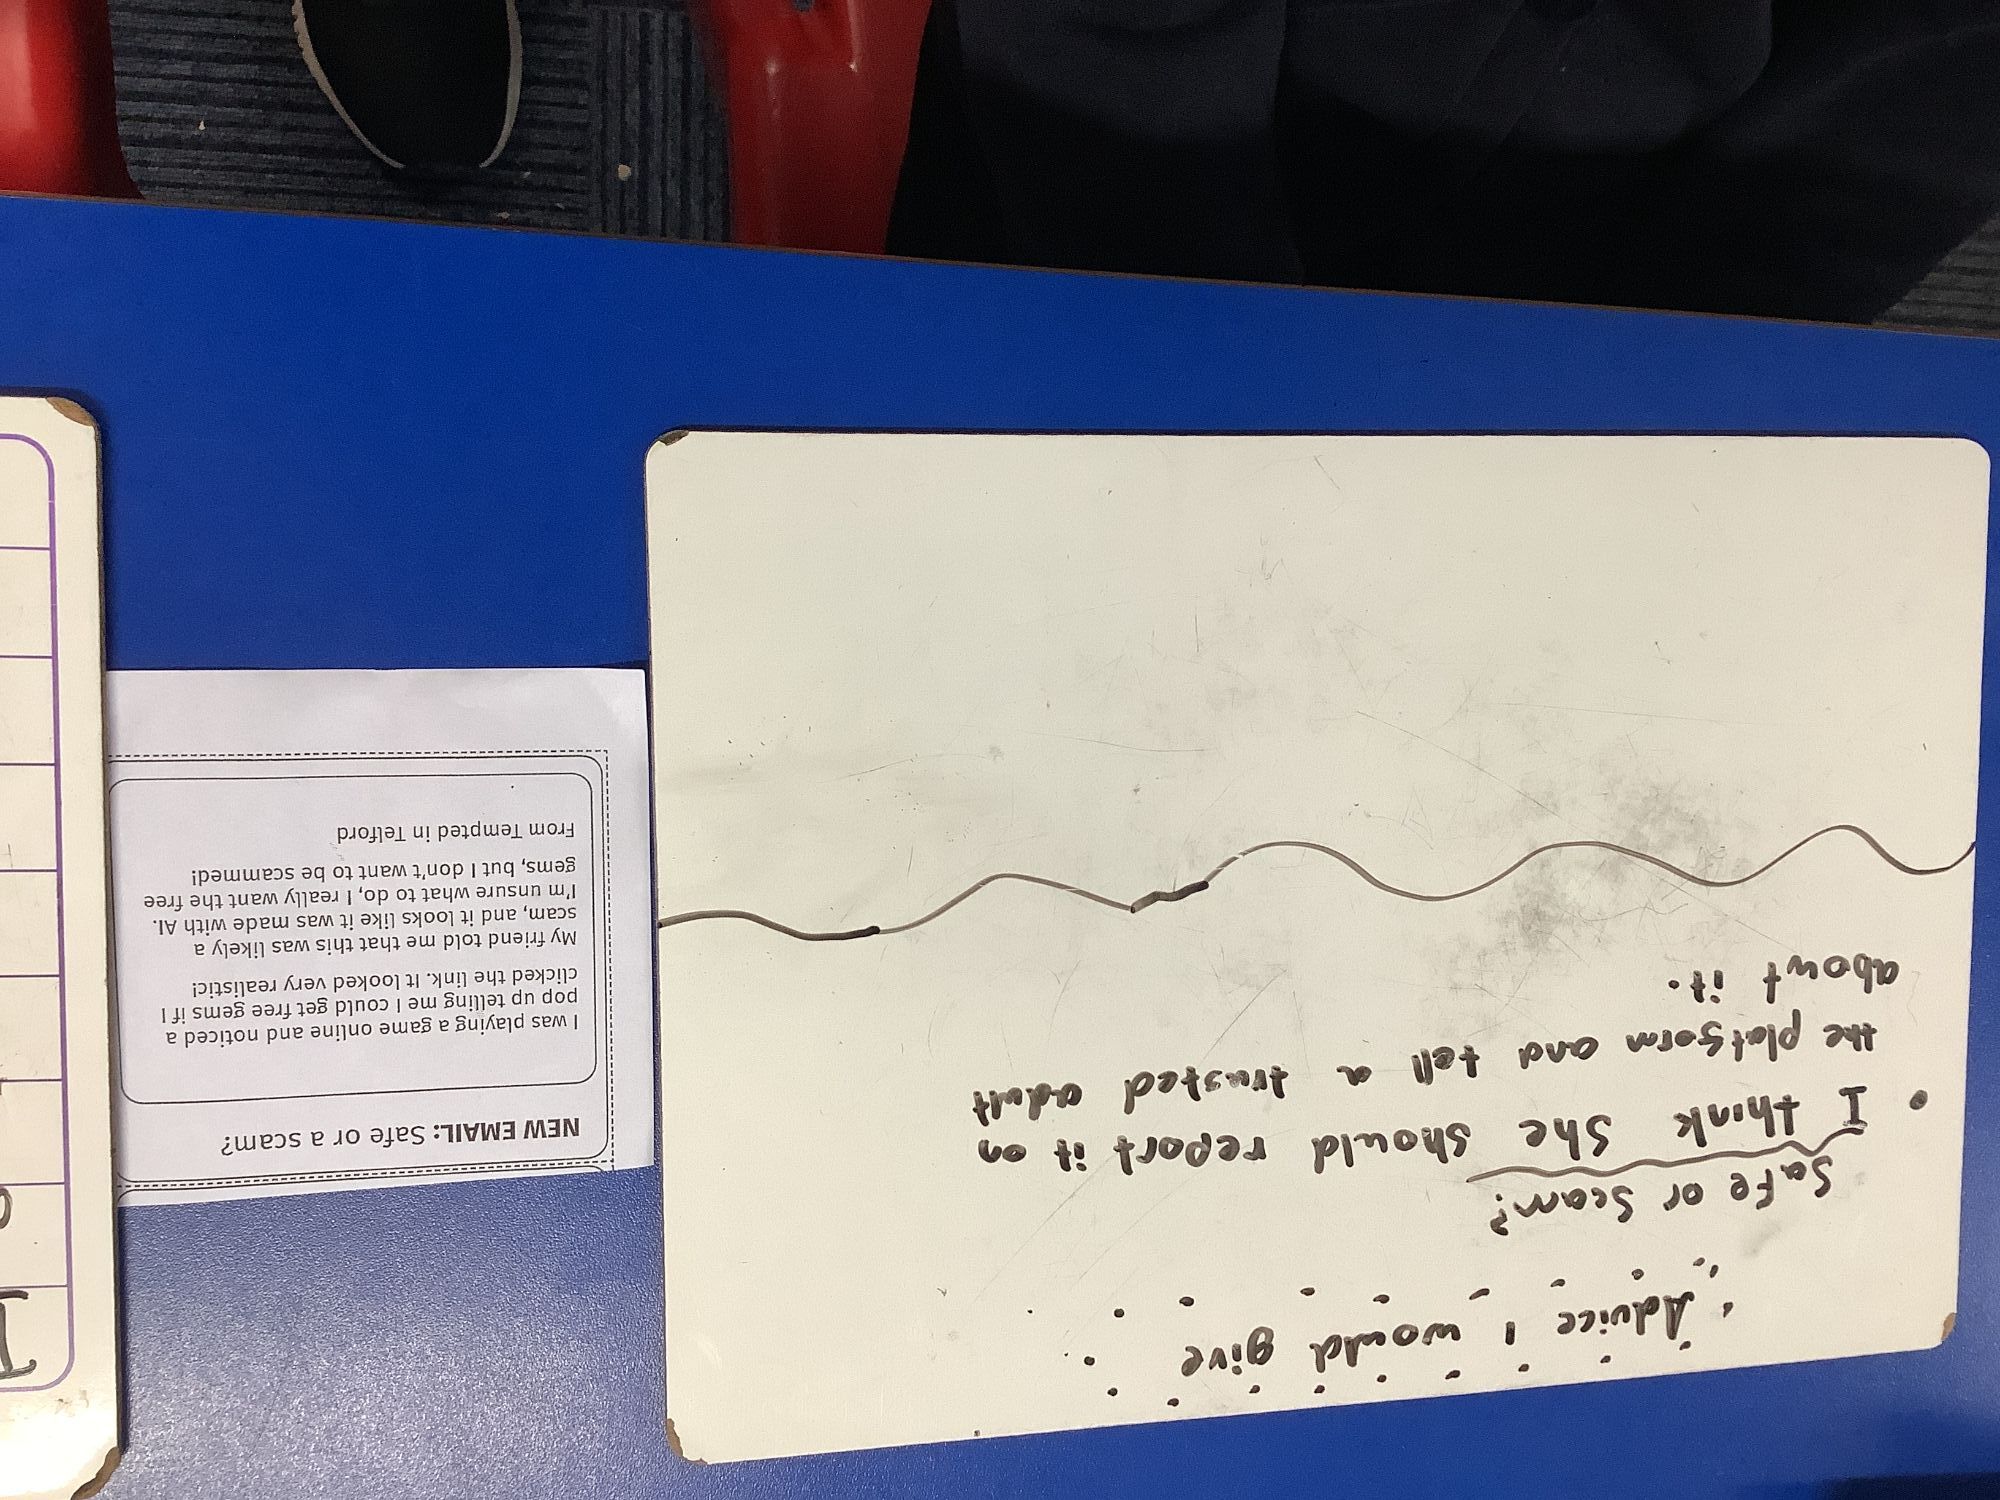 Advice I would give
Safe or Scam?
• I think She should report it on
the platform and tell a trusted adult
about it.
NEW EMAIL: Safe or a scam?
I was playing a game online and noticed a
pop up telling me I could get free gems if I
clicked the link. It looked very realistic!
My friend told me that this was likely a
scam, and it looks like it was made with AI.
I'm unsure what to do, I really want the free
gems, but I don't want to be scammed!
From Tempted in Telford
I